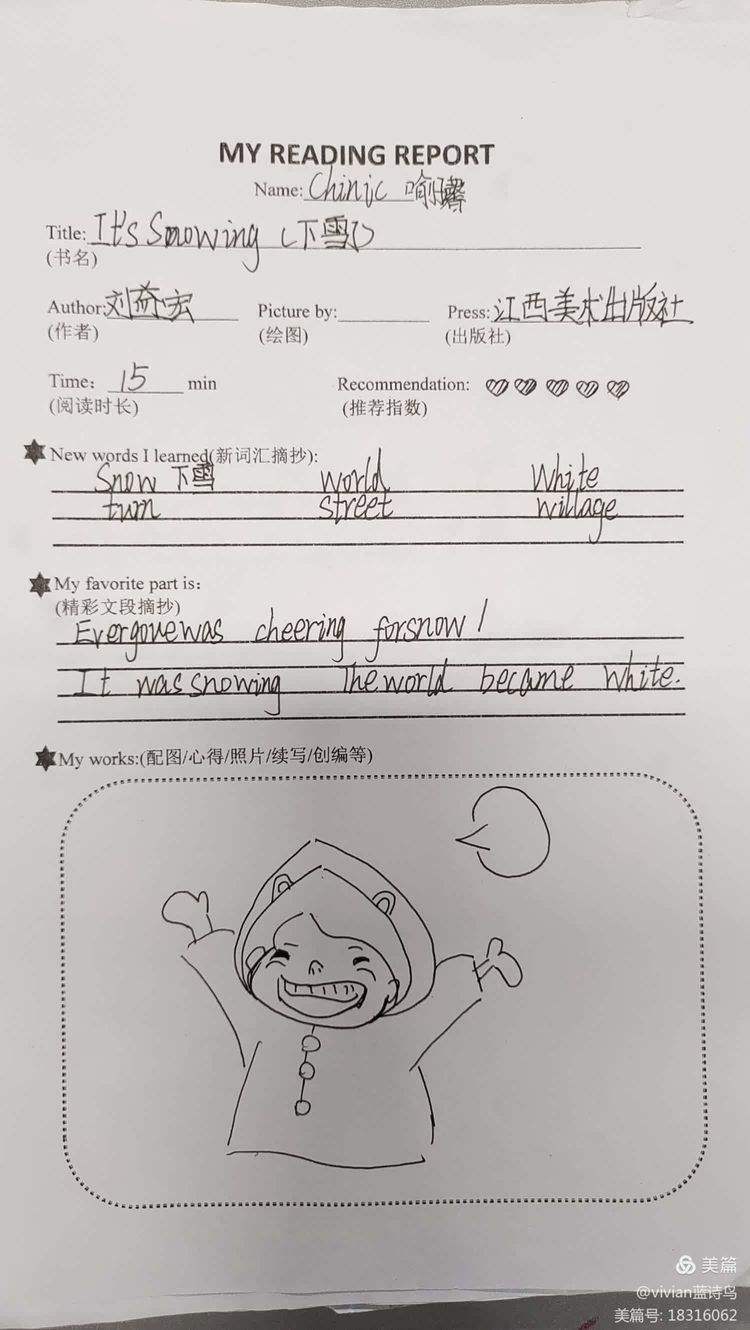 MY READING REPORT
Name: Chinic 喻
Title: It's Snowing (下雪)
(书名)
Author: 刘益宏 Picture by: Press: 江西美术出版社
(作者) (绘图) (出版社)
Time: 15 min Recommendation:
(阅读时长) (推荐指数)
New words I learned(新词汇摘抄):
Snow 下雪 world White
turn street willage
My favorite part is:
(精彩文段摘抄)
Evergone was cheering for snow!
It was snowing The world became white.
My works:(配图/心得/照片/续写/创编等)
美篇
@vivian蓝诗鸟
美篇号: 18316062